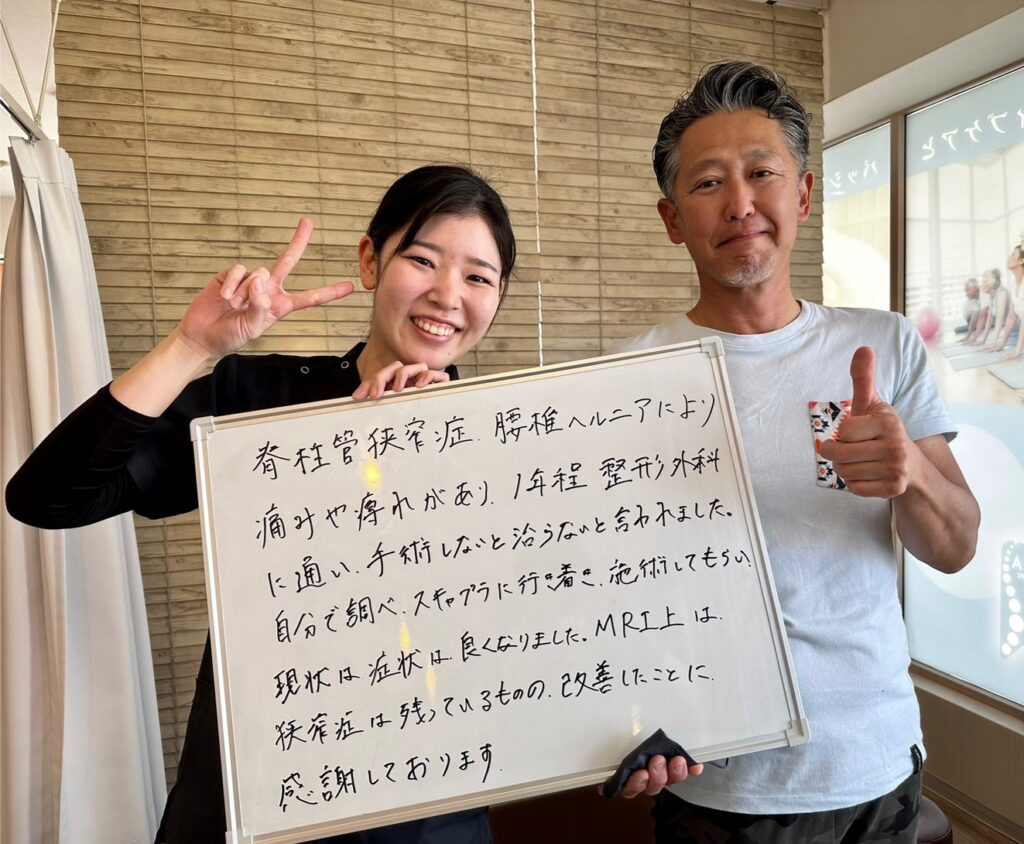 脊柱管狭窄症、腰椎ヘルニアにより
痛みや痺れがあり、1年程 整形外科
に通い、手術しないと治らないと言われました。
自分で調べ、スキャプラに行き着き、施術してもらい、
現状は症状は良くなりました。MRI上は、
狭窄症は残っているものの、改善したことに、
感謝しております